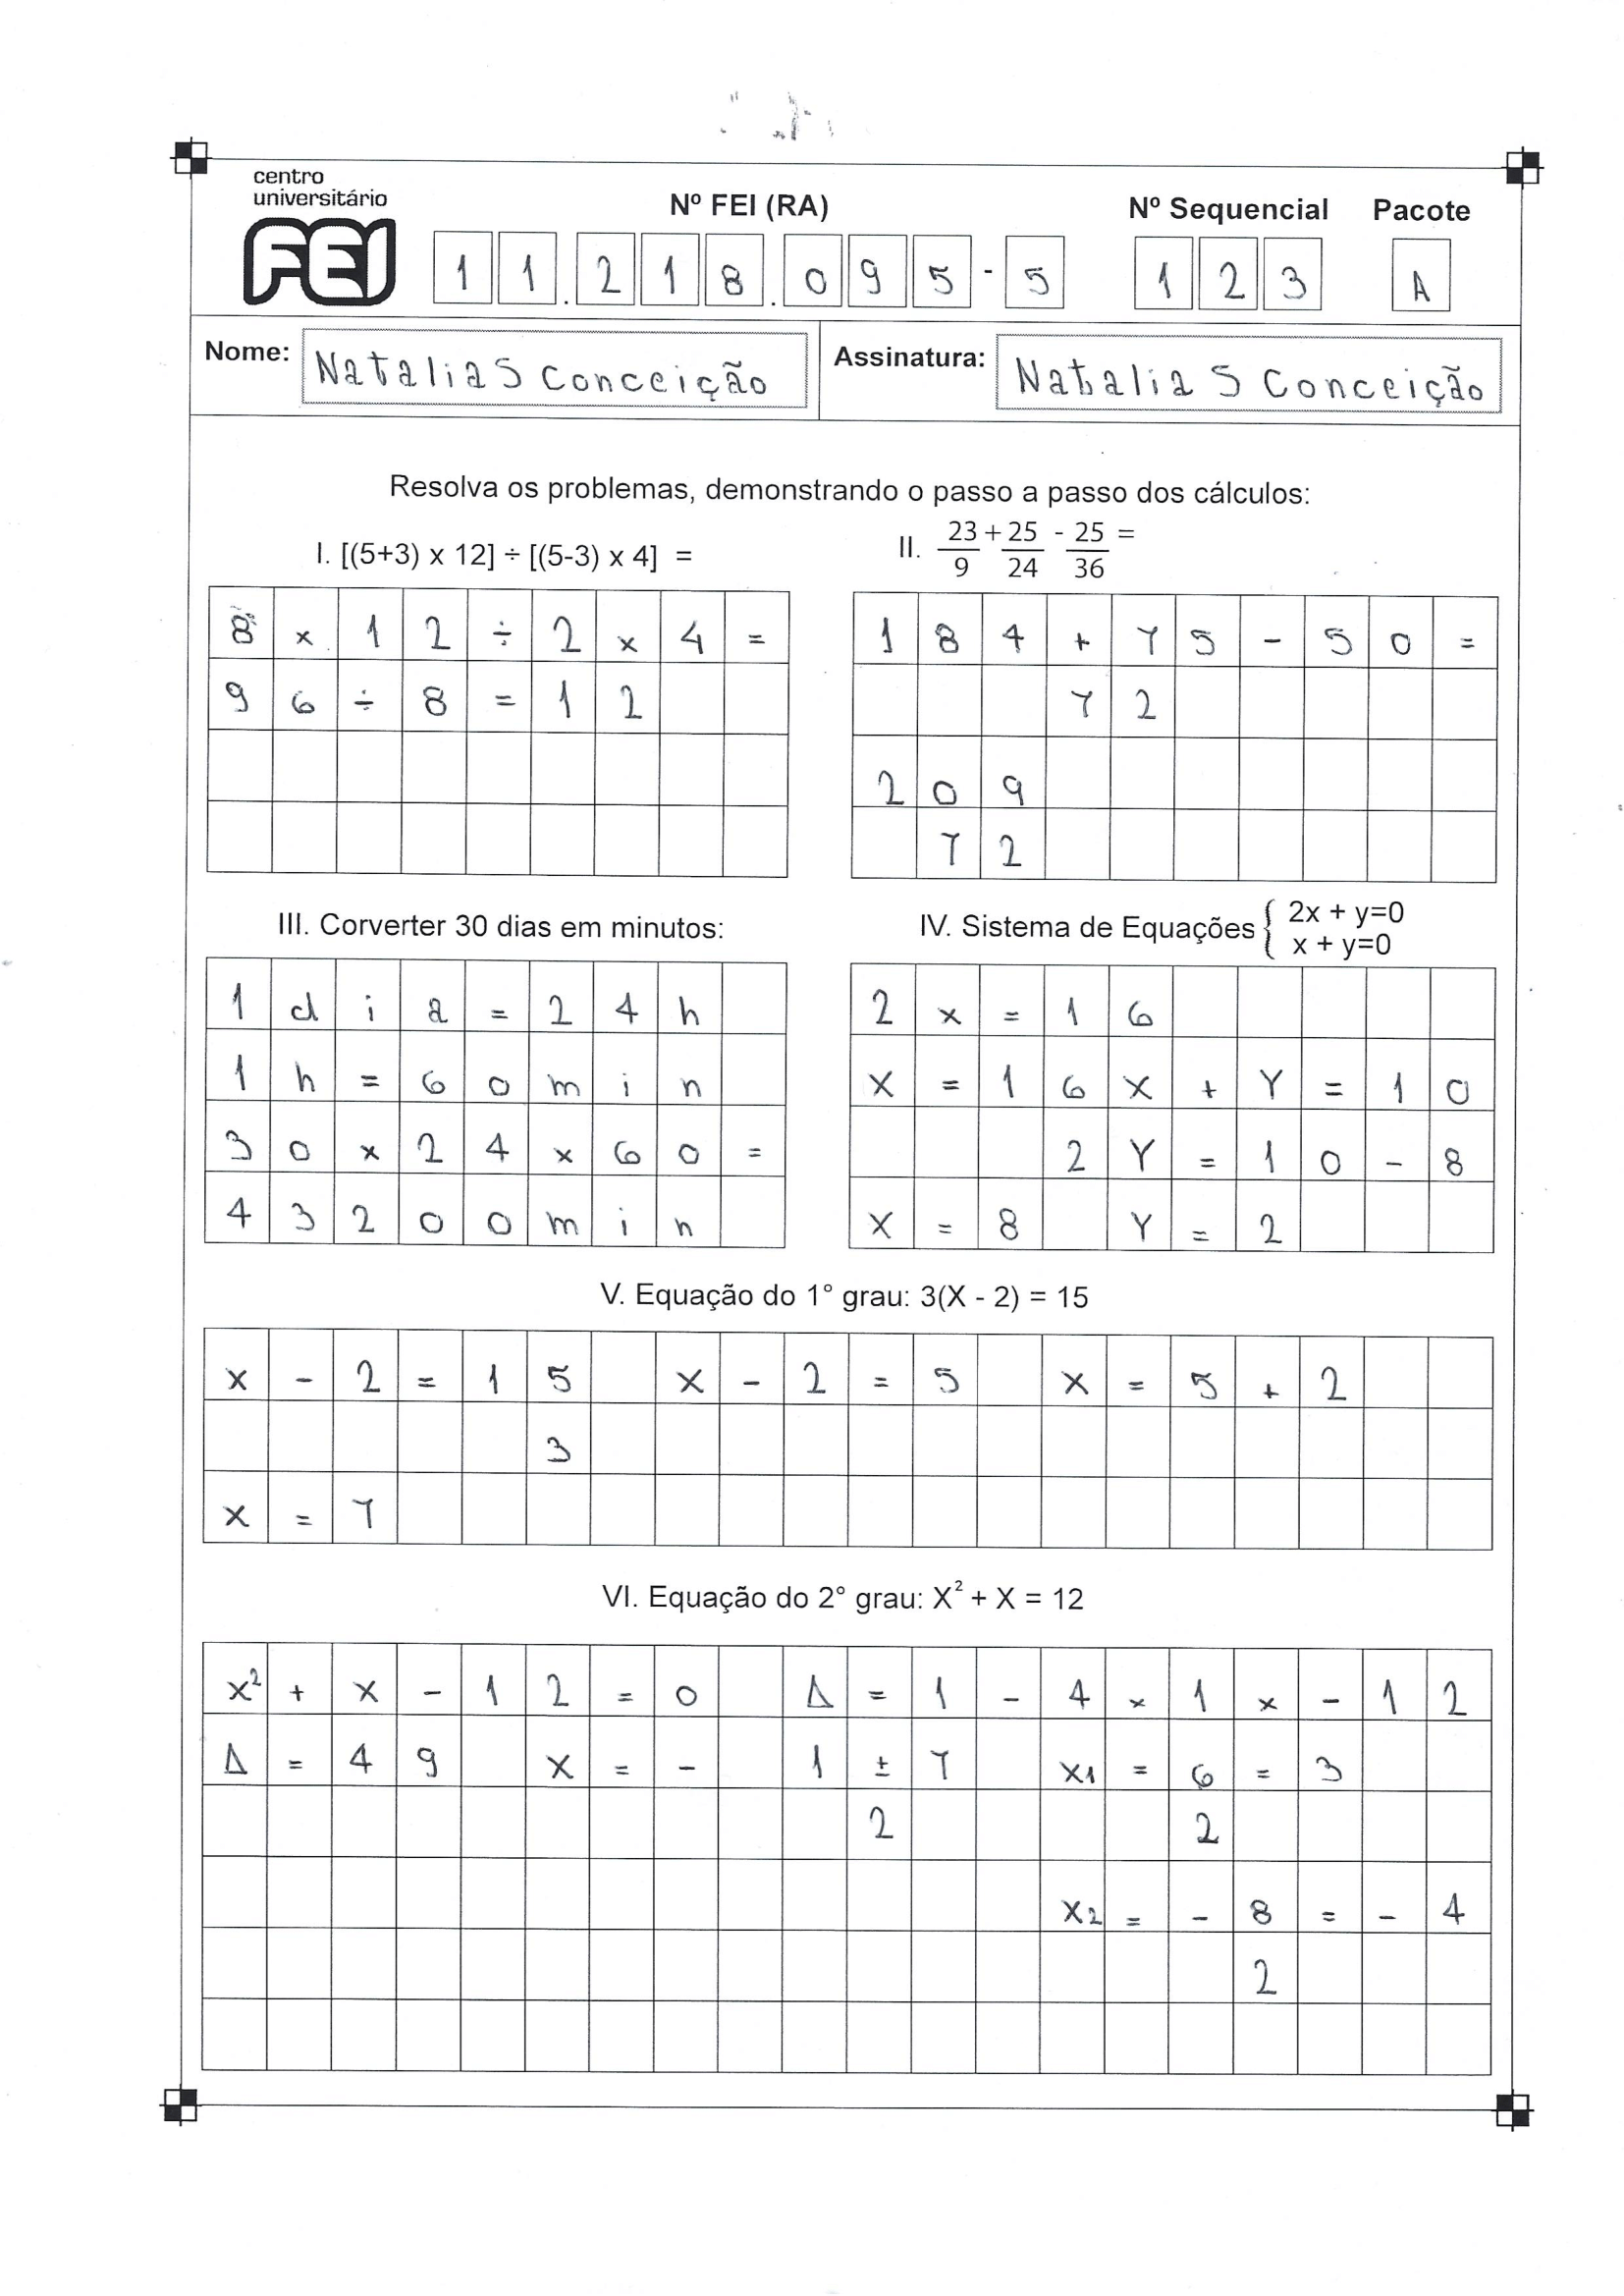 centro
universitário
FEI
Nº FEI (RA)
Nº Sequencial
Pacote
1 1 . 2 1 8 . 0 9 5 - 5
1 2 3
A
Nome: Natalia S Conceição
Assinatura: Natalia S Conceição
Resolva os problemas, demonstrando o passo a passo dos cálculos:
I. [(5+3) x 12] ÷ [(5-3) x 4] =
8 x 1 2 ÷ 2 x 4 =
9 6 ÷ 8 = 1 2
II. 23/9 + 25/24 - 25/36 =
1 8 4 + 7 5 - 5 0 =
7 2
2 0 9
7 2
III. Corverter 30 dias em minutos:
1 d i a = 2 4 h
1 h = 6 0 m i n
3 0 x 2 4 x 6 0 =
4 3 2 0 0 m i n
IV. Sistema de Equações { 2x + y=0
x + y=0
2 x = 1 6
X = 1 6 X + Y = 1 0
2 Y = 1 0 - 8
X = 8 Y = 2
V. Equação do 1° grau: 3(X - 2) = 15
x - 2 = 1 5 X - 2 = 5 X = 5 + 2
3
X = 7
VI. Equação do 2° grau: X² + X = 12
X² + X - 1 2 = 0 Δ = 1 - 4 x 1 x - 1 2
Δ = 4 9 X = - 1 ± 7 X1 = 6 = 3
2 2
X2 = - 8 = - 4
2